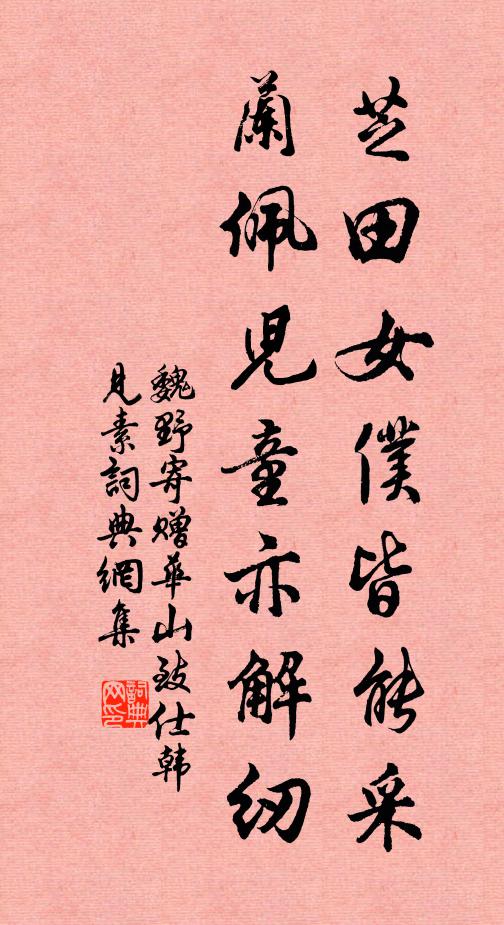 芝田女僕皆能采
蘭佩兒童亦解紉
魏野寄贈華山致仕韓
見素詞典網集
詞典网印